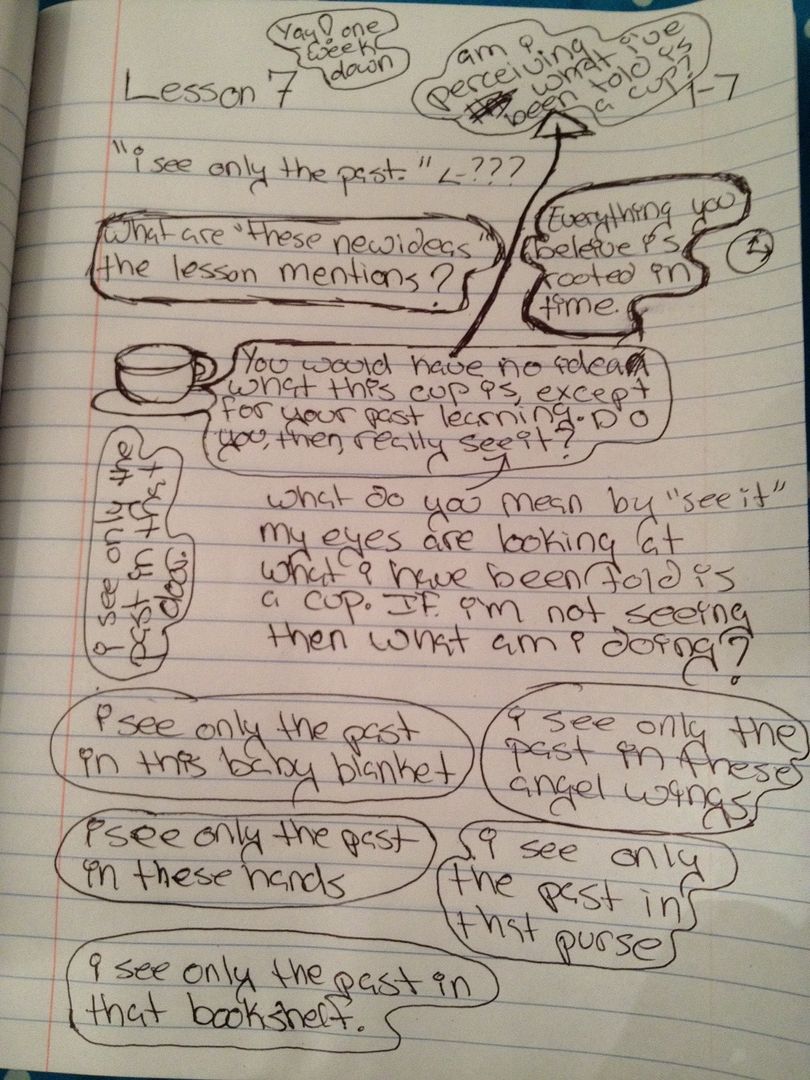 Yay! one
week
down
am i
perceiving
what i've
been told is
a cup?
Lesson 7
1-7
"i see only the past." <-???
What are "these new ideas"
the lesson mentions?
Everything you
beleive is
rooted in
time.
You would have no idea
what this cup is, except
for your past learning. Do
you, then, really see it?
what do you mean by "see it"
my eyes are looking at
what i have been told is
a cup. If i'm not seeing
then what am i doing?
i see only the
past in that
door.
i see only the past
in this baby blanket
i see only the
past in these
angel wings
i see only the past
in these hands
i see only
the past in
that purse
i see only the past in
that bookshelf.